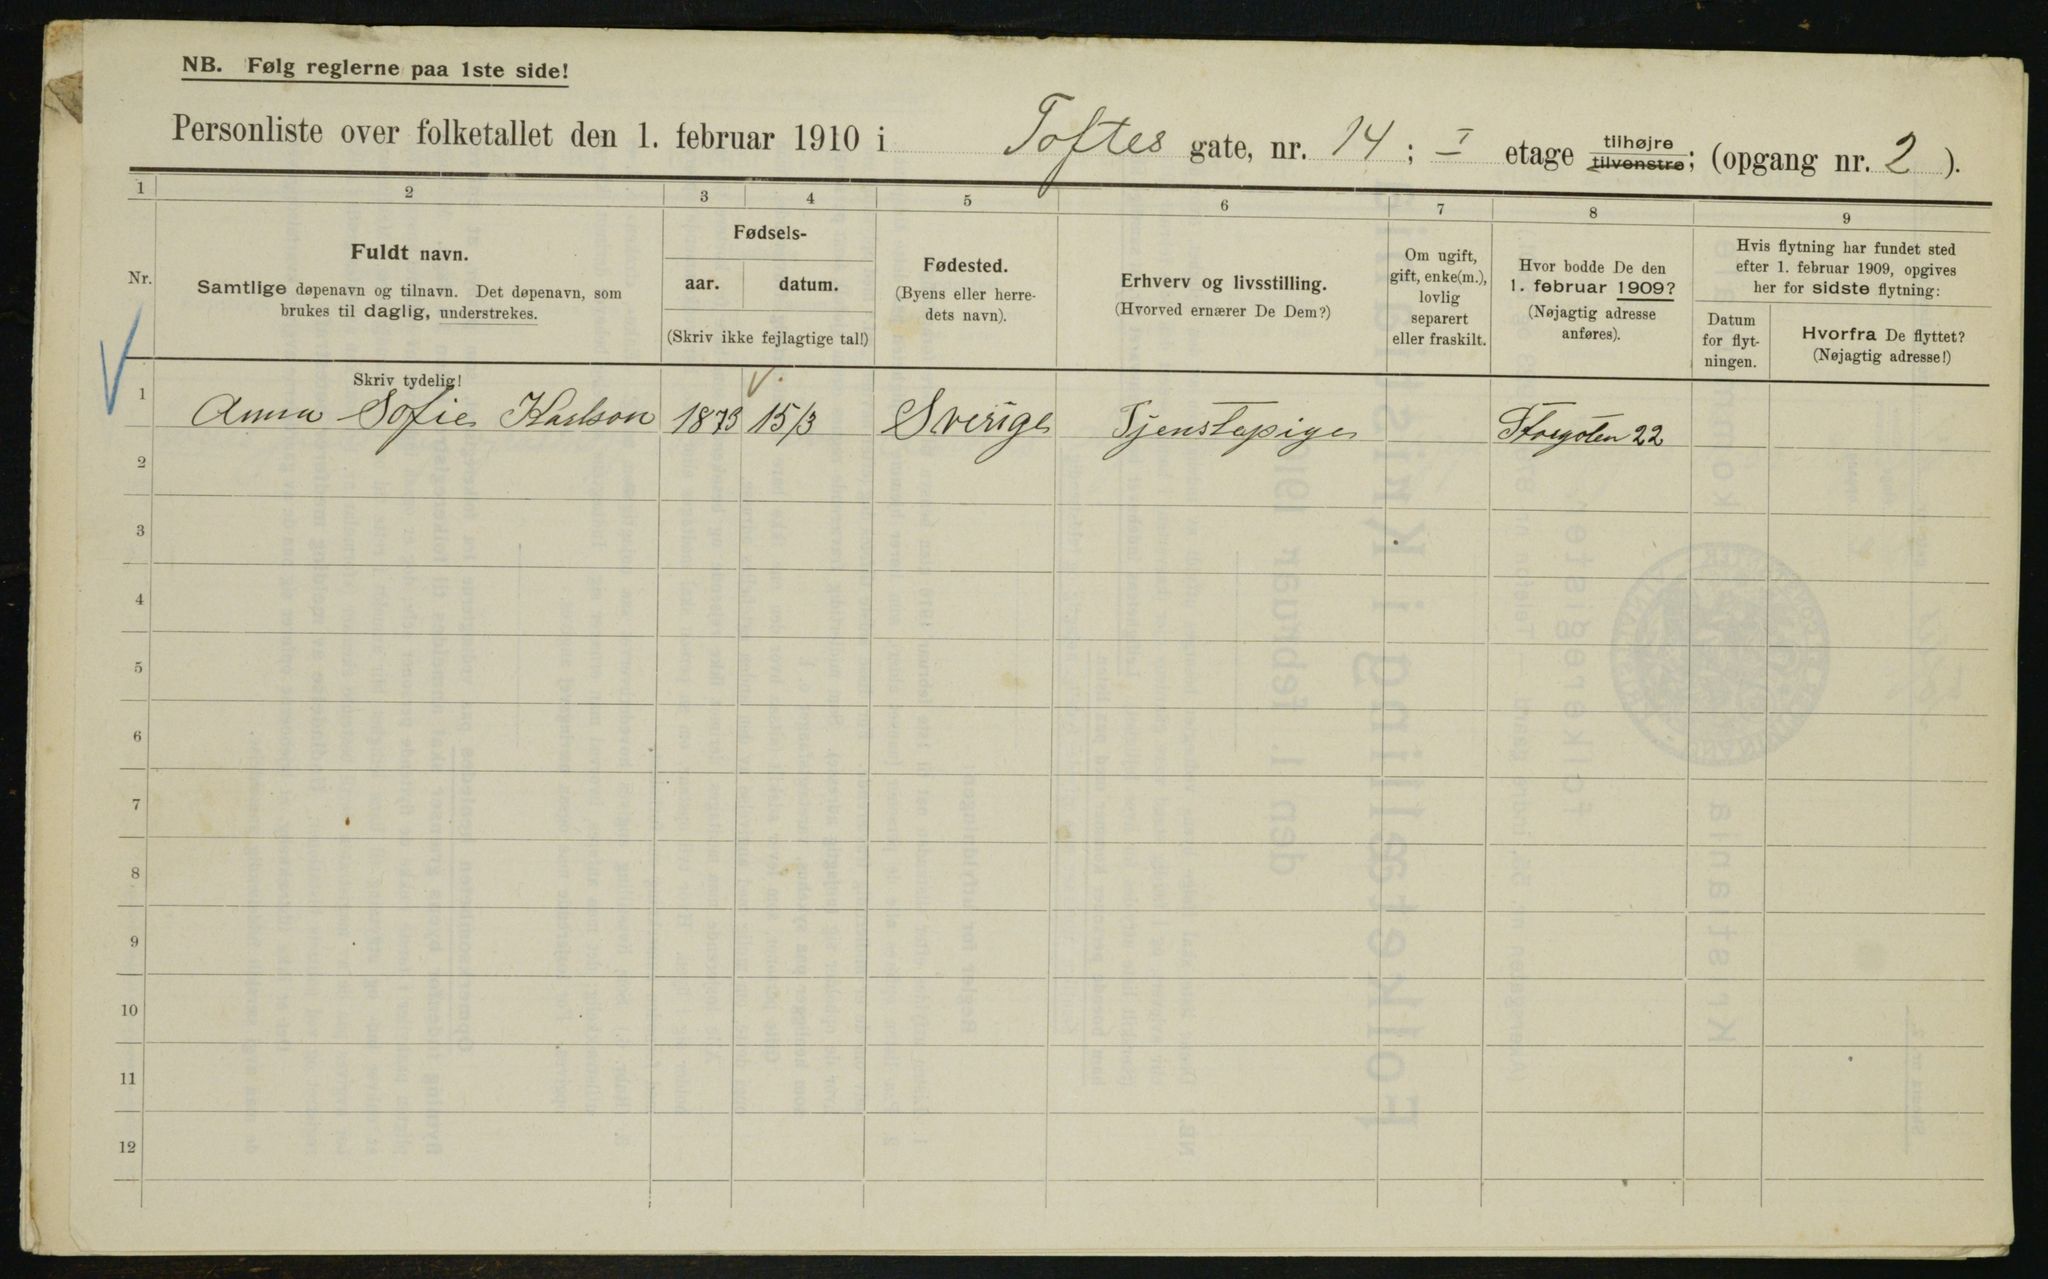 NB. Følg reglerne paa 1ste side!
Personliste over folketallet den 1. februar 1910 i Toftes gate, nr. 14 ; I etage tilhøjre tilvenstre; (opgang nr. 2 ).
1 2 3 4 5 6 7 8 9
Nr.
Fuldt navn.
Samtlige døpenavn og tilnavn. Det døpenavn, som
brukes til daglig, understrekes.
Fødsels-
aar. datum.
(Skriv ikke fejlagtige tal!)
Fødested.
(Byens eller herre-
dets navn).
Erhverv og livsstilling.
(Hvorved ernærer De Dem?)
Om ugift,
gift, enke(m.),
lovlig
separert
eller fraskilt.
Hvor bodde De den
1. februar 1909?
(Nøjagtig adresse
anføres).
Hvis flytning har fundet sted
efter 1. februar 1909, opgives
her for sidste flytning:
Datum
for flyt-
ningen.
Hvorfra De flyttet?
(Nøjagtig adresse!)
Skriv tydelig!
1 Anna Sofie Karlson 1873 15/3 Sverige Tjenstepige 22
2
3
4
5
6
7
8
9
10
11
12